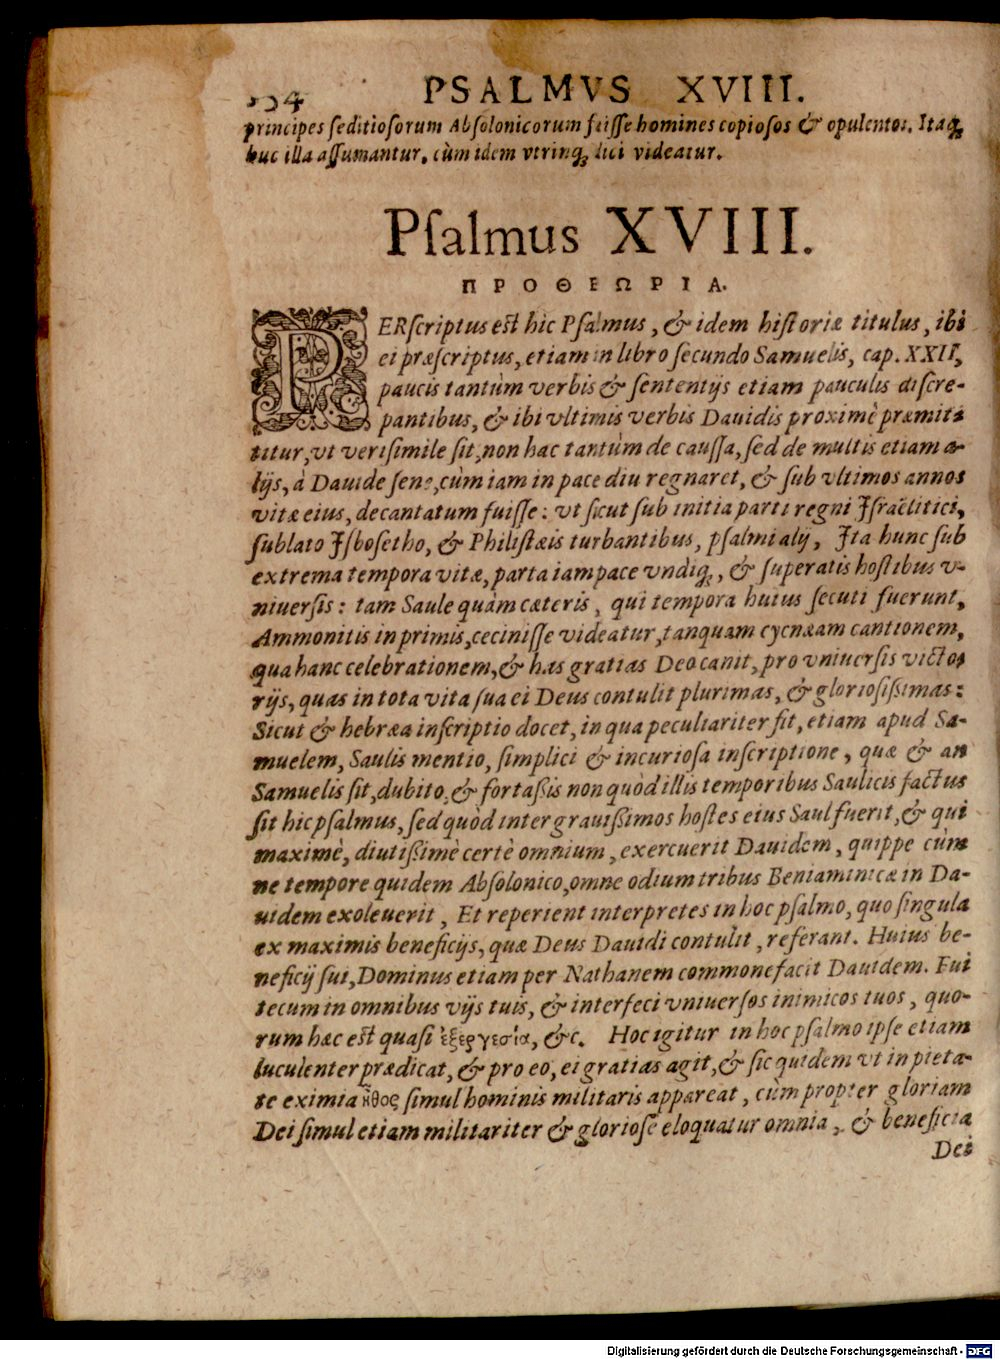 PSALMVS XVIII.
principes ſeditioſorum Abſolonicorum fuiſſe homines copioſos & opulentos. Itaq;
huc illa aſſumantur, cùm idem vtrinq; dici videatur.
Pſalmus XVIII.
ΠΡΟΘΕΩΡΙΑ.
PERſcriptus eſt hic Pſalmus, & idem hiſtoriæ titulus, ibi
ei præſcriptus, etiam in libro ſecundo Samuelis, cap. XXII,
paucis tantùm verbis & ſententijs etiam pauculis diſcre-
pantibus, & ibi vltimis verbis Dauidis proximè præmit-
titur, vt veriſimile ſit, non hac tantùm de cauſſa, ſed de multis etiam a-
lijs, à Dauide ſene, cùm iam in pace diu regnaret, & ſub vltimos annos
vitæ eius, decantatum fuiſſe: vt ſicut ſub initia parti regni Iſraëlitici,
ſublato Iſboſetho, & Philiſtæis turbantibus, pſalmi alij, Ita hunc ſub
extrema tempora vitæ, parta iam pace vndiq;, & ſuperatis hoſtibus v-
niuerſis: tam Saule quàm cæteris, qui tempora huius ſecuti fuerunt,
Ammonitis in primis, ceciniſſe videatur, tanquam cycnæam cantionem,
qua hanc celebrationem, & has gratias Deo canit, pro vniuerſis victo-
rijs, quas in tota vita ſua ei Deus contulit plurimas, & glorioſiſsimas:
Sicut & hebræa inſcriptio docet, in qua peculiariter fit, etiam apud Sa-
muelem, Saulis mentio, ſimplici & incurioſa inſcriptione, quæ & an
Samuelis ſit, dubito, & fortaßis non quòd illis temporibus Saulicis factus
ſit hic pſalmus, ſed quòd inter grauißimos hoſtes eius Saul fuerit, & qui
maximè, diutißimè certè omnium, exercuerit Dauidem, quippe cùm
ne tempore quidem Abſolonico, omne odium tribus Beniaminicæ in Da-
uidem exoleuerit, Et reperient interpretes in hoc pſalmo, quo ſingula
ex maximis beneficijs, quæ Deus Dauidi contulit, referant. Huius be-
neficij ſui, Dominus etiam per Nathanem commonefacit Dauidem. Fui
tecum in omnibus vijs tuis, & interfeci vniuerſos inimicos tuos, quo-
rum hæc eſt quaſi ἐξεργεσία, &c. Hoc igitur in hoc pſalmo ipſe etiam
luculenter prædicat, & pro eo, ei gratias agit, & ſic quidem vt in pieta-
te eximia ἦθος ſimul hominis militaris appareat, cùm propter gloriam
Dei ſimul etiam militariter & glorioſè eloquatur omnia, & beneficia
Dei
Digitalisierung gefördert durch die Deutsche Forschungsgemeinschaft - DFG